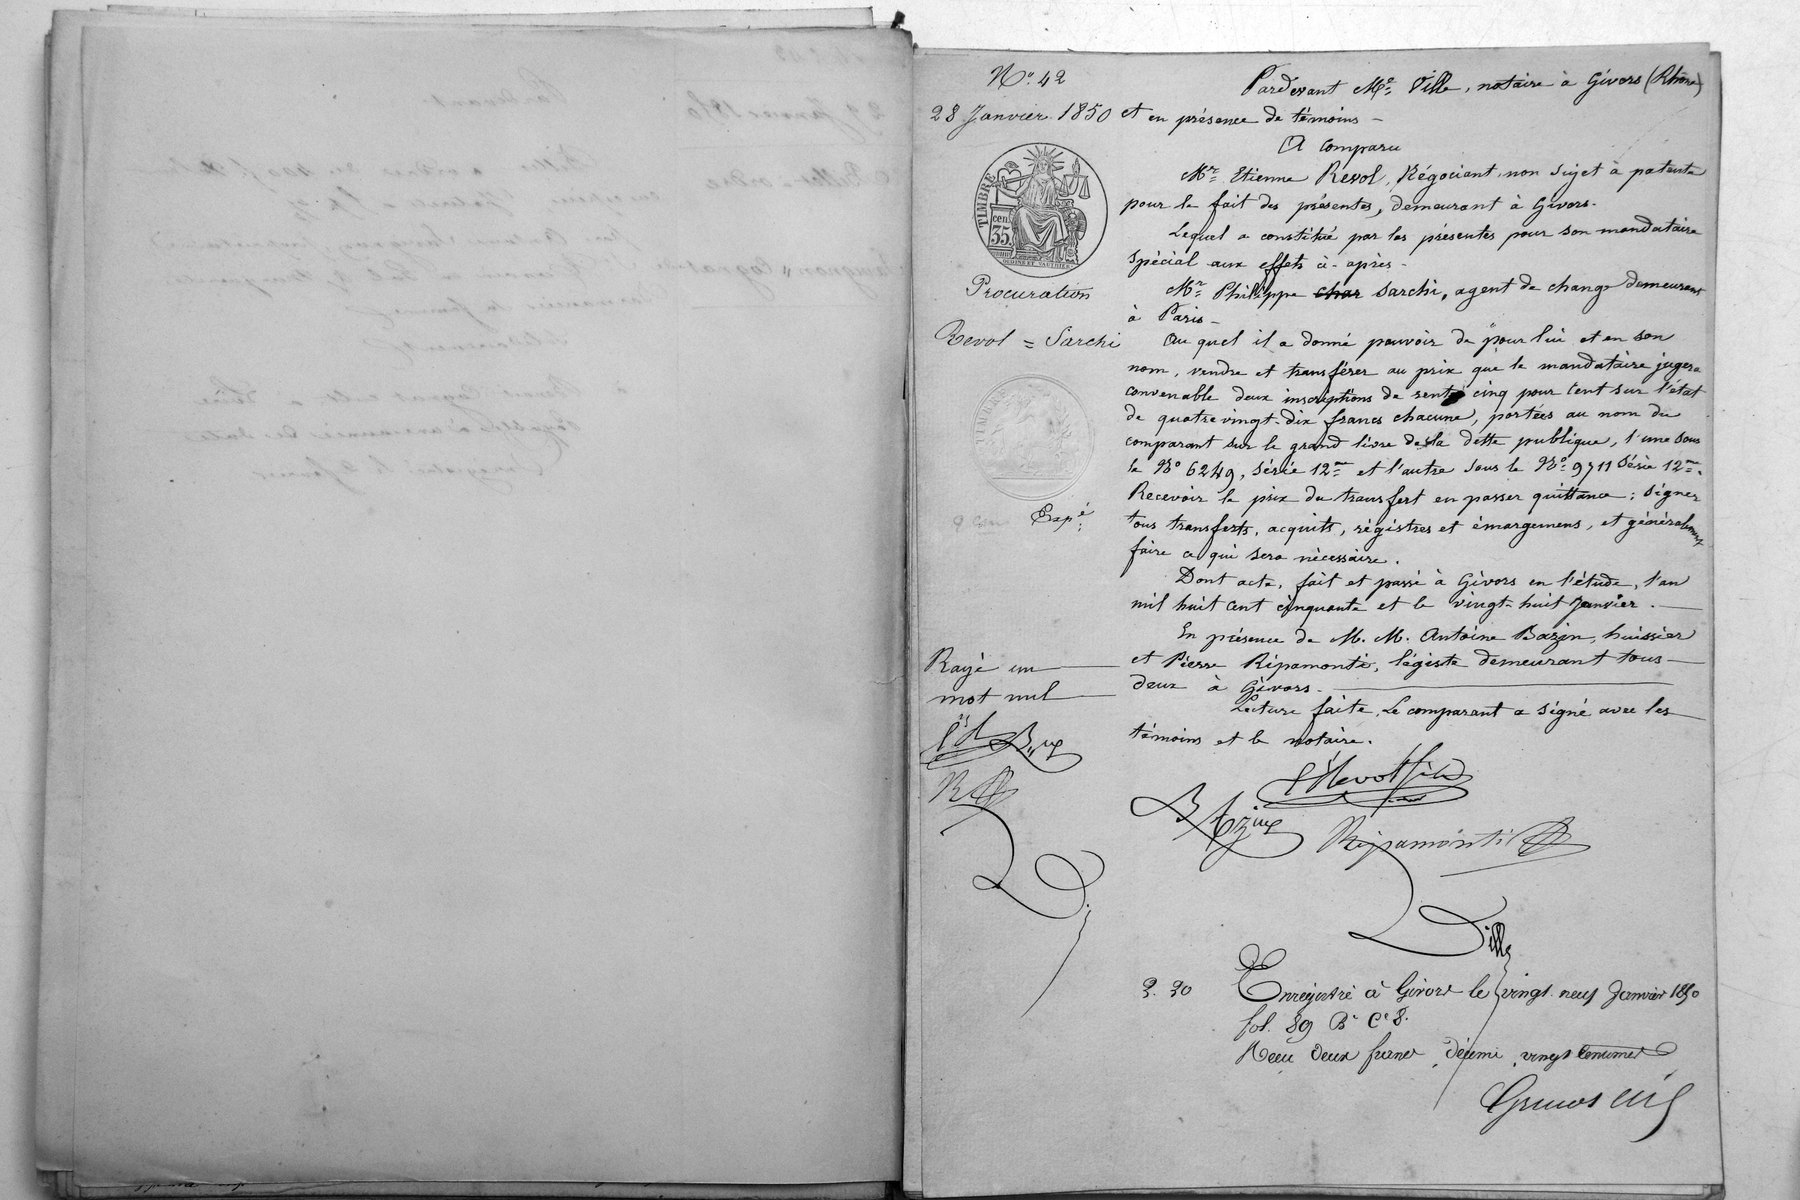 N.° 42
28 Janvier 1850
TIMBRE
cen.
35.
Procuration
Revol = Sarchi
TIMBRE
Exp.é
Rayé un
mot nul
Pardevant Me. Ville, notaire à Givors (Rhône)
et en présence de témoins –
A comparu
Mr. Etienne Revol, Négociant, non sujet à patente
pour le fait des présentes, demeurant à Givors.
Lequel a constitué par les présentes pour son mandataire
spécial aux effets ci-après –
Mr. Philippe char Sarchi, agent de change demeurant
à Paris –
Au quel il a donné pouvoir de pour lui et en son
nom, vendre et transférer au prix que le mandataire jugera
convenable deux inscriptions de rente cinq pour cent sur l'état
de quatre vingt-dix francs chacune, portées au nom du
comparant sur le grand livre de la dette publique, l'une sous
le No. 6249, série 12me. et l'autre sous le No. 9711 Série 12me.
Recevoir le prix du transfert en passer quittance ; signer
tous transferts, acquits, régistres et émargemens, et généralement
faire ce qui sera nécessaire.
Dont acte, fait et passé à Givors en l'étude, l'an
mil huit cent cinquante et le vingt-huit Janvier. –
En présence de M. M. Antoine Bazin, huissier
et Pierre Ripamonti, légiste demeurant tous –
deux à Givors. –
Lecture faite, Le comparant a signé avec les
témoins et le notaire.
Revol fils
Bazin
Ripamonti
Ville
2. 20
Enregistré à Givors le vingt neuf Janvier 1850
fol. 89 Ro. Ce 8.
Reçu deux francs, décimes, vingt centimes